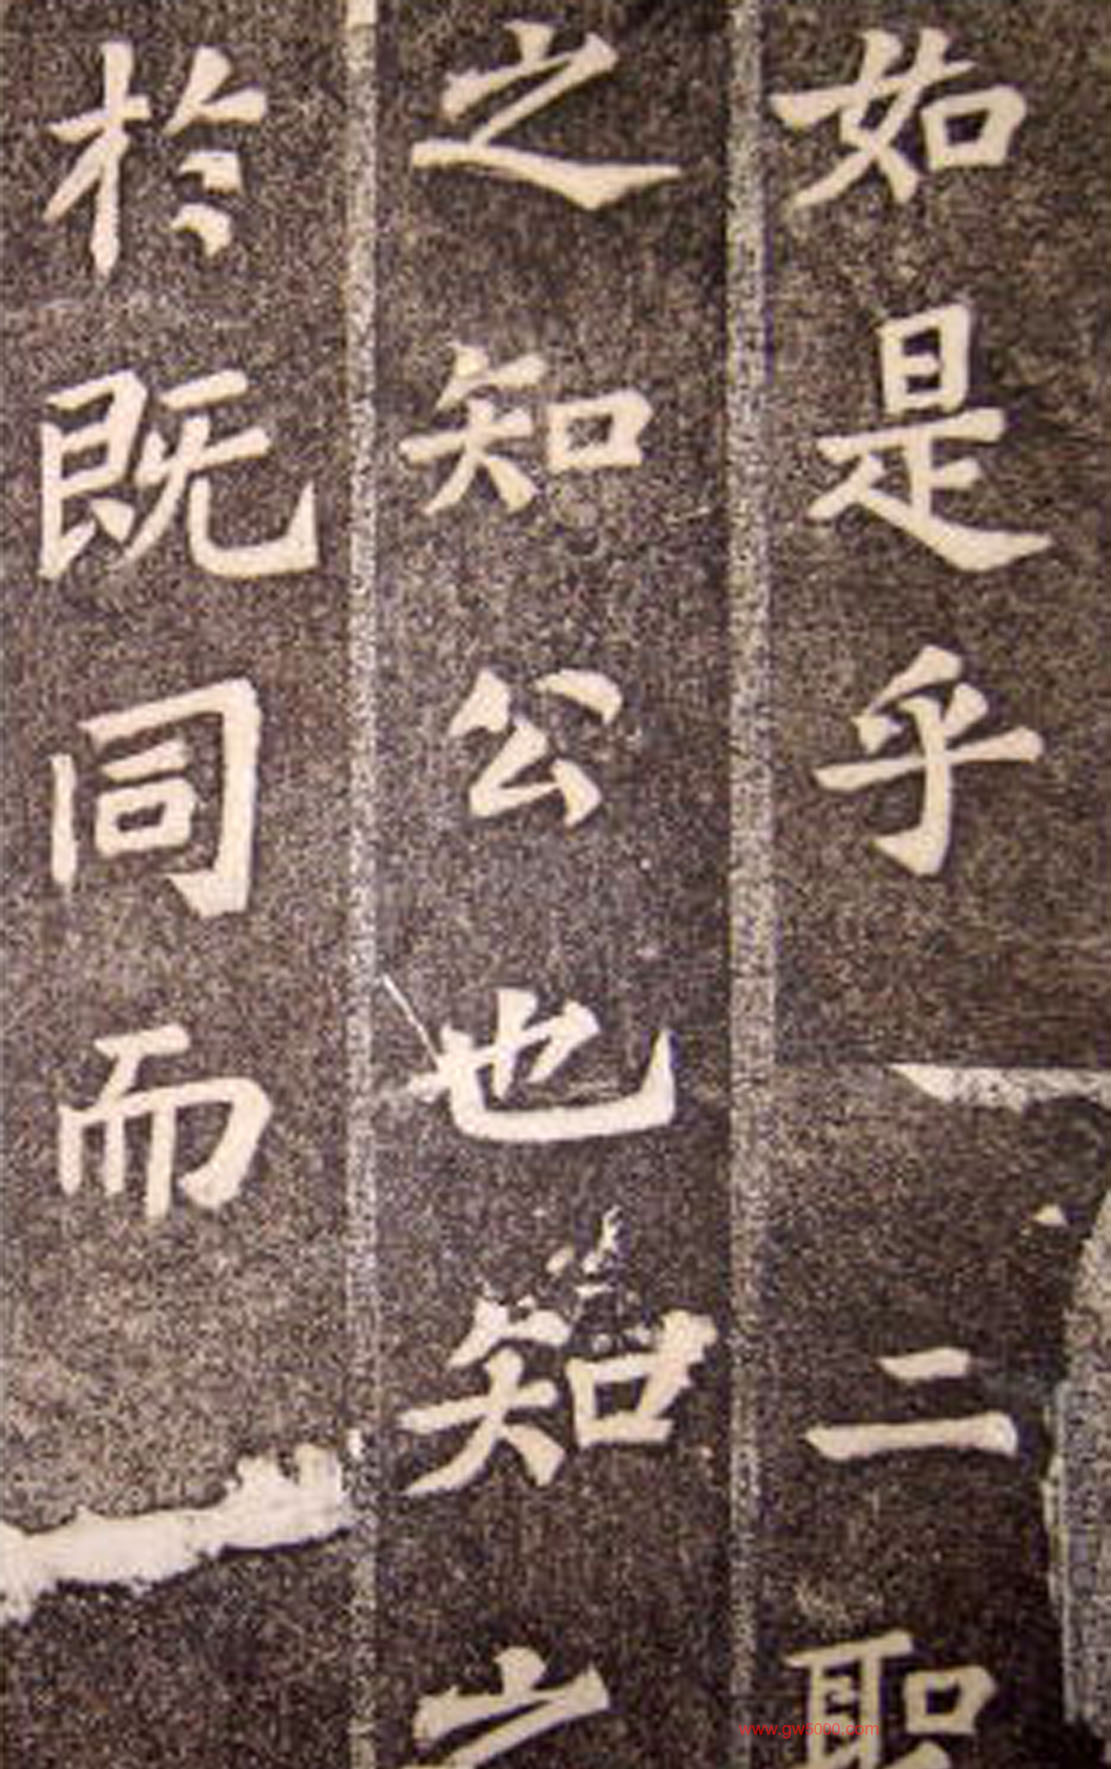 如是乎二聖
之知公也知之
於既同而
www.gw6000.com